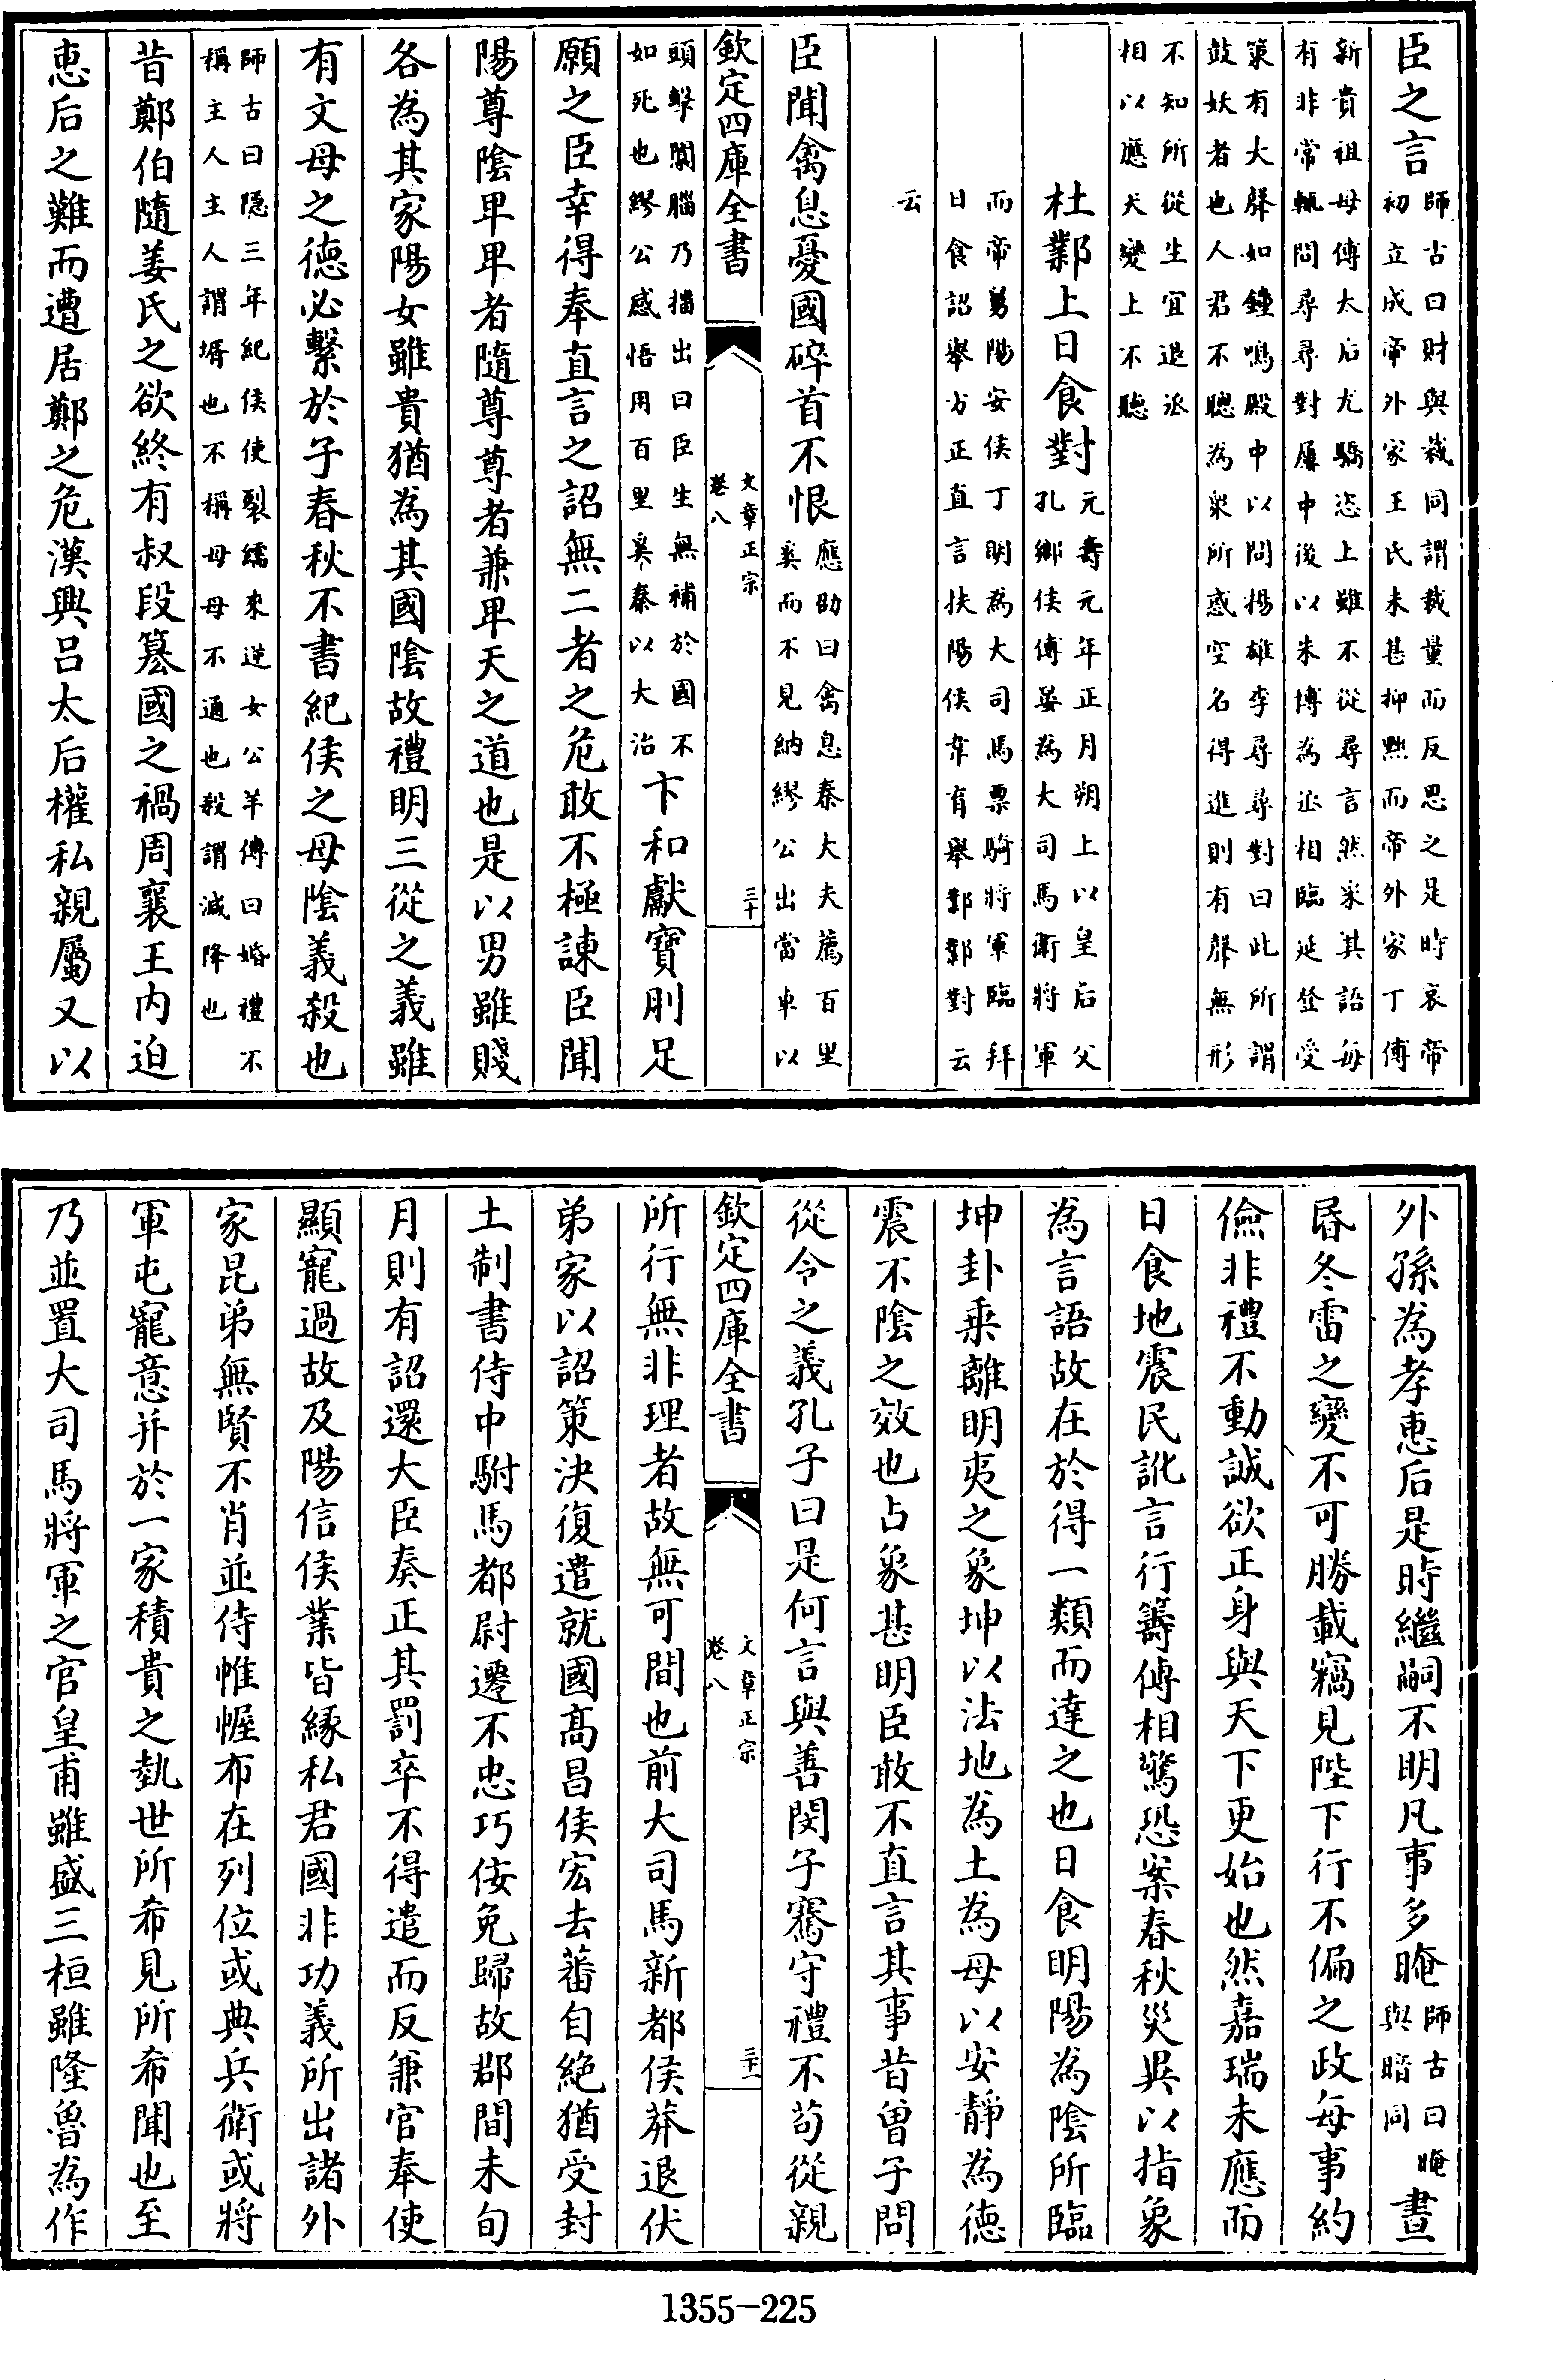 臣之言師古曰財與裁同謂裁量而反思之是時哀帝初立成帝外家王氏未甚抑黜而帝外家丁傅
新貴祖母傅太后尤驕恣上雖不從尋言然采其語每有非常輒問尋尋對屢中後以朱博為丞相臨延登受
策有大聲如鐘鳴殿中以問揚雄李尋尋對曰此所謂鼓妖者也人君不聰為衆所惑空名得進則有聲無形
不知所從生宜退丞相以應天變上不聽
杜鄴上日食對元壽元年正月朔上以皇后父孔鄉侯傅晏為大司馬衛將軍
而帝舅陽安侯丁明為大司馬票騎將軍臨拜日食詔舉方正直言扶陽侯韋育舉鄴鄴對云
云
臣聞禽息憂國碎首不恨應劭曰禽息秦大夫薦百里奚而不見納繆公出當車以
欽定四庫全書
文章正宗
卷八
三十
頭擊闑腦乃播出曰臣生無補於國不如死也繆公感悟用百里奚秦以大治卞和獻寶刖足
願之臣幸得奉直言之詔無二者之危敢不極諫臣聞
陽尊陰卑卑者隨尊尊者兼卑天之道也是以男雖賤
各為其家陽女雖貴猶為其國陰故禮明三從之義雖
有文母之德必繫於子春秋不書紀侯之母陰義殺也
師古曰隱三年紀侯使裂繻來逆女公羊傳曰婚禮不稱主人主人謂壻也不稱母母不通也殺謂減降也
昔鄭伯隨姜氏之欲終有叔段簒國之禍周襄王内迫
惠后之難而遭居鄭之危漢興呂太后權私親屬又以
外孫為孝惠后是時繼嗣不明凡事多晻師古曰晻與暗同晝
昏冬雷之變不可勝載竊見陛下行不偏之政每事約
儉非禮不動誠欲正身與天下更始也然嘉瑞未應而
日食地震民訛言行籌傳相驚恐案春秋災異以指象
為言語故在於得一類而達之也日食明陽為陰所臨
坤卦乗離明夷之象坤以法地為土為母以安靜為德
震不陰之效也占象甚明臣敢不直言其事昔曽子問
從令之義孔子曰是何言與善閔子騫守禮不苟從親
欽定四庫全書
文章正宗
卷八
三十一
所行無非理者故無可間也前大司馬新都侯莽退伏
弟家以詔策決復遣就國髙昌侯宏去蕃自絶猶受封
土制書侍中駙馬都尉遷不忠巧佞免歸故郡間未旬
月則有詔還大臣奏正其罰卒不得遣而反兼官奉使
顯寵過故及陽信侯業皆縁私君國非功義所出諸外
家昆弟無賢不肖並侍帷幄布在列位或典兵衛或將
軍屯寵意并於一家積貴之埶世所希見所希聞也至
乃並置大司馬將軍之官皇甫雖盛三桓雖隆魯為作
1355-225